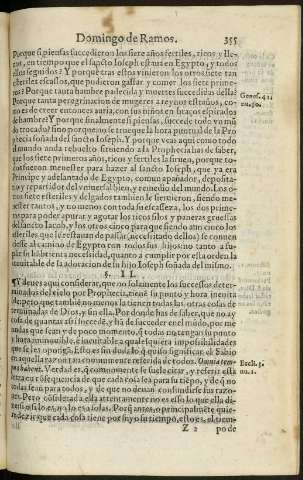 Domingo de Ramos. 355
Porque si piensas succedieron los siete años fertiles, ricos y lle-
nos, en tiempo que el sancto Ioseph estaua en Egypto, y todos
ellos seguidos? Y porque tras estos vinieron los otros siete tan
esteriles escassos, que pudieron gastar y comer los siete prime-
ros? Porque tanta hambre padecida y muertes succedidas della?
Porque tanta peregrinacion de mugeres a reynos estraños, co-
mo es de creer entonces auria, con sus niños en braços
Y porque finalmente si piensas, succede todo vn mũ
do trocado? sino porque no se trueque la hora puntual de la Pro
phecia soñada del sancto Ioseph. Y porque veas aqui como todo
el mundo anda rebuelto siruiendo a la Prophecia has de saber,
que los siete primeros años, ricos y fertiles la siruen, porque to-
dos fueron menester para hazer al sancto Ioseph, que ya era
Principe y adelantado de Egypto, comun apañador, deposita-
rio y repartidor del vniuersal bien, y remedio del mundo. Los o-
tros siete esteriles y delgados tambien le siruieron, siendo me-
nester tantos, y no menos con toda su escasseza, los dos prime-
ros para poder apurar y agotar los ricos silos y paneras gruessas
del sancto Iacob, y los otros cinco para que siendo aun cinco los
esteriles que le restauan de passar, necessitado dellos se comen
desse al camino de Egypto con todos sus hijos no tanto a su-
plir su hambrienta necessidad, quanto a cumplir por esta orden la
ineuitable de la adoracion de su hijo Ioseph soñada del mismo.
§. II.
Y deues aqui considerar, que no solamente los successos deter-
minados del cielo por Prophecia, tiene su punto y hora ineuita
ble, pero que tambien no menos la tienen todas las otras cosas de
terminadas de Dios, y sin ella. Por donde has de saber, que no ay
cosa de quantas assi succede, y ha de succeder en el modo, por me
nudas que sean y de poco momento, q̃ todas no tengan su punto
y hora innumerable, è ineuitable a qualesquiera impossibilidades
que se les opongã. Esto es sin duda lo q̃ quiso significar el Sabio
en aquella razon tan comunmente referida de todos. Omnia tem-
pus habent. Verdad es, q̃ comunmente se suele citar, y referir esta
de que cada cosa sea para su tiempo, y de q̃ no
todas son para todos, y de que no deuan confundirse sus razo-
nes. Pero considerada ella atentamente no es esso lo que ella di-
ze, o si lo es, no lo es a solas. Porq̃ antes, o principalmẽte quie-
re dezir que cada cosa tiene por suyo su tiempo, esto es, al tiem-
Z 2 po de
Genes. 41.
nu. 30.
Eccli. 3.
nu. 1.